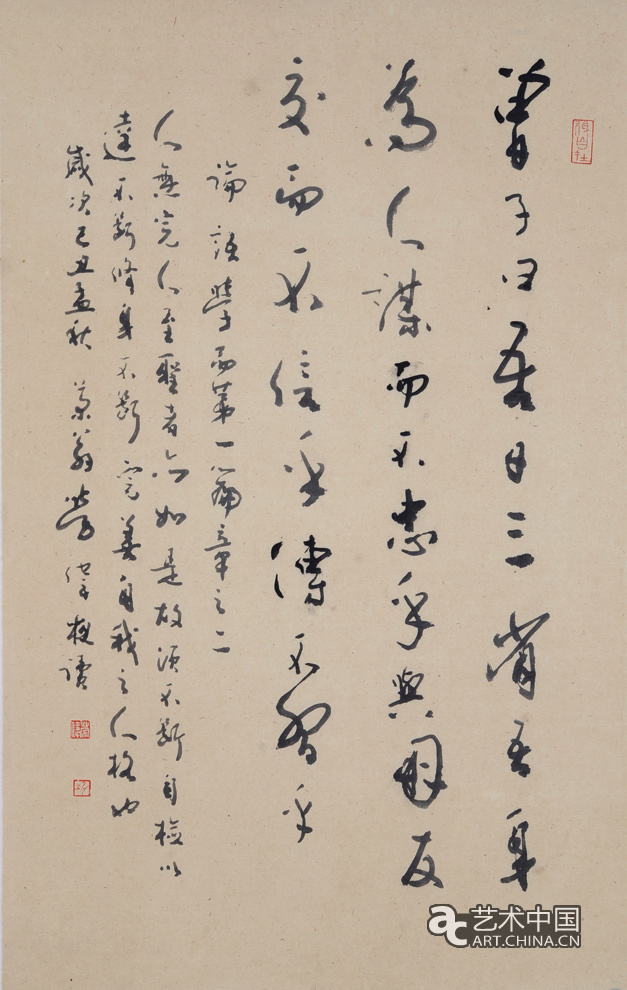 曾子曰吾日三省吾身
為人謀而不忠乎與朋友
交而不信乎傳不習乎
論語學而第一篇章之二
人無完人至聖者亦如是故須不斷自檢以
達不斷修身不斷完善自我之人格也
歲次己丑孟秋 翁 夜讀
艺术中国
ART.CHINA.CN